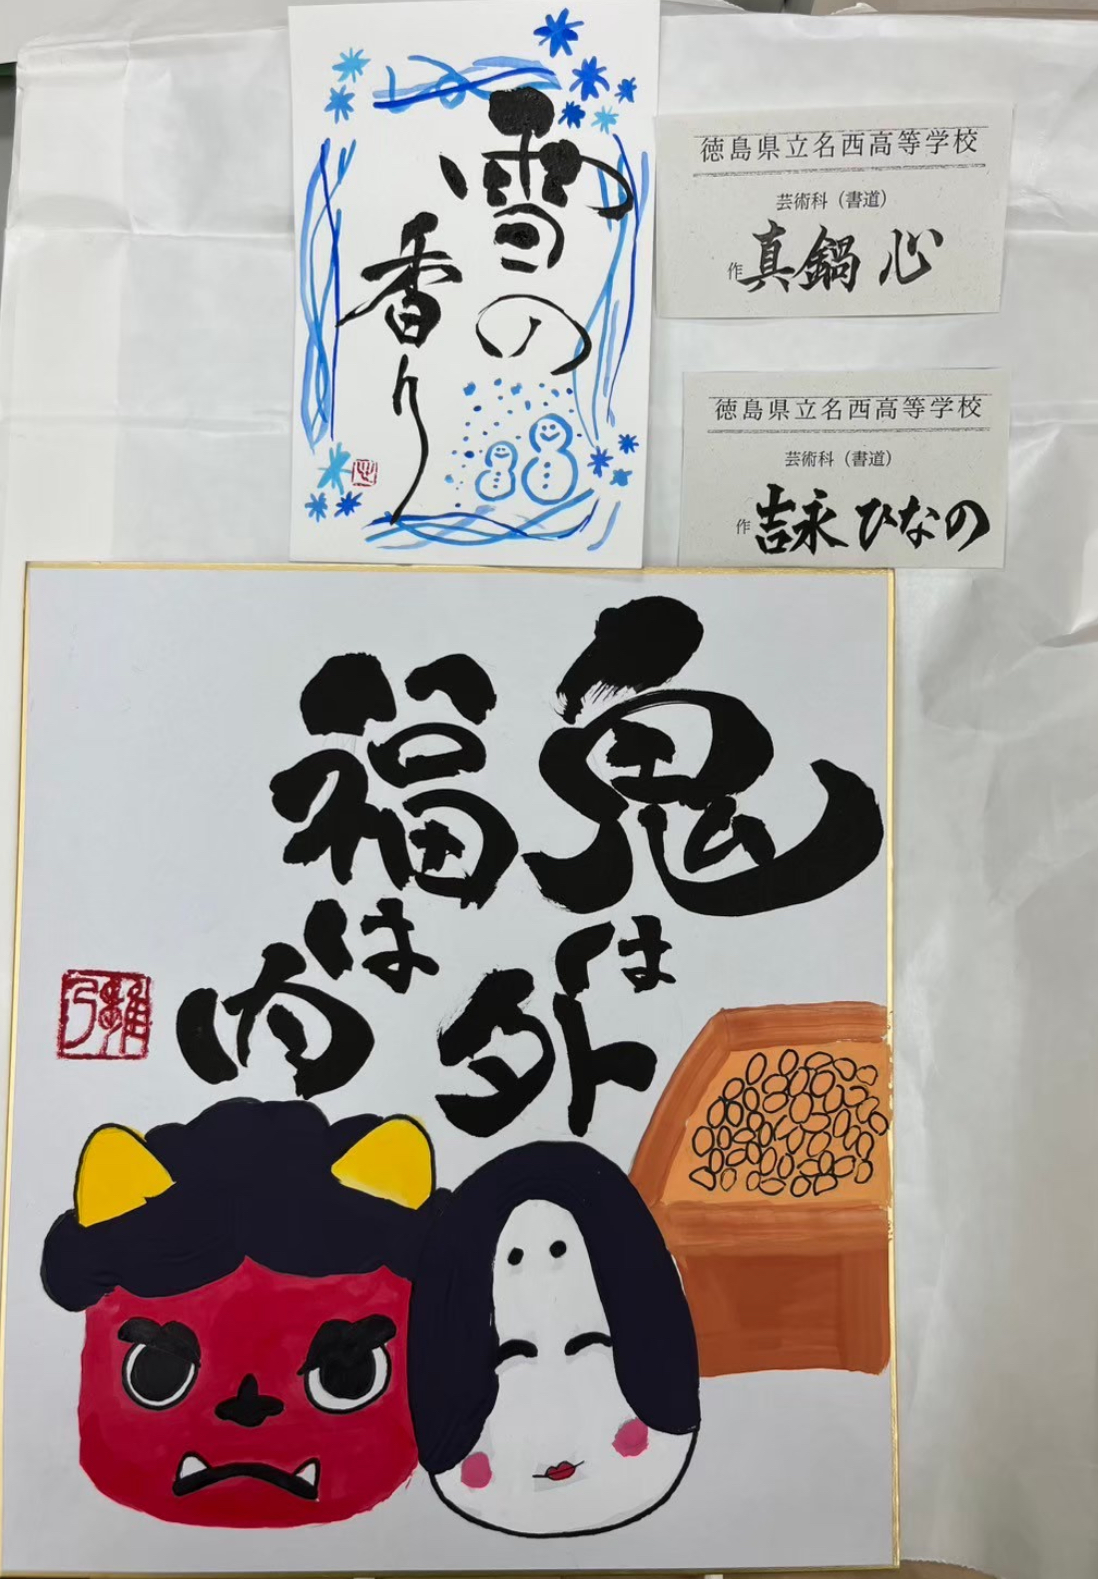 雪の
香り
徳島県立名西高等学校
芸術科（書道）
作 真鍋 心
徳島県立名西高等学校
芸術科（書道）
作 吉永 ひなの
鬼は外
福は内